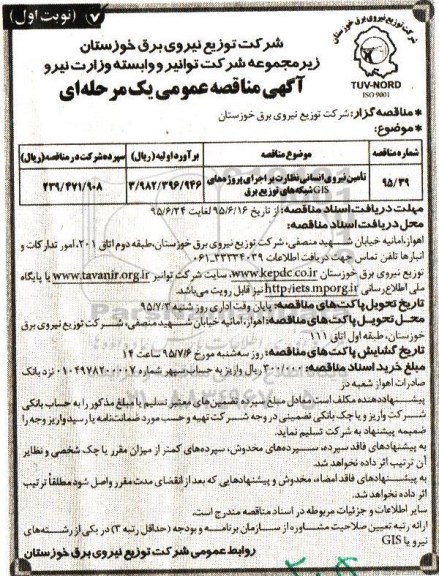 (نوبت اول)
۷
شرکت توزیع نیروی برق خوزستان
TUV-NORD
ISO 9001
شرکت توزیع نیروی برق خوزستان
زیرمجموعه شرکت توانیر و وابسته وزارت نیرو
آگهی مناقصه عمومی یک مرحله‌ای
* مناقصه گزار: شرکت توزیع نیروی برق خوزستان
* موضوع:
شماره مناقصه | موضوع مناقصه | برآورد اولیه (ریال) | سپرده شرکت در مناقصه (ریال)
۹۵/۳۹ | تأمین نیروی انسانی نظارت بر اجرای پروژه‌های GIS شبکه‌های توزیع برق | ۳/۹۸۲/۳۹۶/۹۴۶ | ۲۳۹/۴۷۱/۹۰۸
مهلت دریافت اسناد مناقصه: از تاریخ ۹۵/۶/۱۶ لغایت ۹۵/۶/۲۴
محل دریافت اسناد مناقصه:
اهواز، امانیه خیابان شهید منصفی، شرکت توزیع نیروی برق خوزستان، طبقه دوم اتاق ۲۰۱، امور تدارکات و
انبارها تلفن تماس جهت دریافت اطلاعات ۰۶۱-۳۳۳۳۴۰۳۹
توزیع نیروی برق خوزستان www.kepdc.co.ir، سایت شرکت توانیر www.tavanir.org.ir یا پایگاه
ملی اطلاع رسانی http://iets.mporg.ir نیز قابل رویت می‌باشد.
تاریخ تحویل پاکت‌های مناقصه: پایان وقت اداری روز شنبه ۹۵/۷/۳
محل تحویل پاکت‌های مناقصه: اهواز، امانیه خیابان شهید منصفی، شرکت توزیع نیروی برق
خوزستان، طبقه اول اتاق ۱۱۱
تاریخ گشایش پاکت‌های مناقصه: روز سه‌شنبه مورخ ۹۵/۷/۶ ساعت ۱۴
مبلغ خرید اسناد مناقصه: ۳۰۰/۰۰۰ ریال واریز به حساب سپهر شماره ۰۱۰۴۹۷۸۲۰۰۰۰۷ نزد بانک
صادرات اهواز شعبه دز
پیشنهاددهنده مکلف است معادل مبلغ سپرده تضمین‌های معتبر تسلیم یا مبلغ مذکور را به حساب بانکی
شرکت واریز و یا چک بانکی تضمینی در وجه شرکت تهیه و حسب مورد ضمانت‌نامه یا رسید واریز وجه را
ضمیمه پیشنهاد به شرکت تسلیم نماید.
به پیشنهادهای فاقد سپرده، سپرده‌های مخدوش، سپرده‌های کمتر از میزان مقرر یا چک شخصی و نظایر
آن ترتیب اثر داده نخواهد شد.
به پیشنهادهای فاقد امضاء، مخدوش و پیشنهادهایی که بعد از انقضای مدت مقرر واصل شود مطلقاً ترتیب
اثر داده نخواهد شد.
سایر اطلاعات و جزئیات مربوطه در اسناد مناقصه مندرج است.
ارائه رتبه تعیین صلاحیت مشاوره از سازمان برنامه و بودجه (حداقل رتبه ۳) در یکی از رشته‌های
نیرو یا GIS
روابط عمومی شرکت توزیع نیروی برق خوزستان